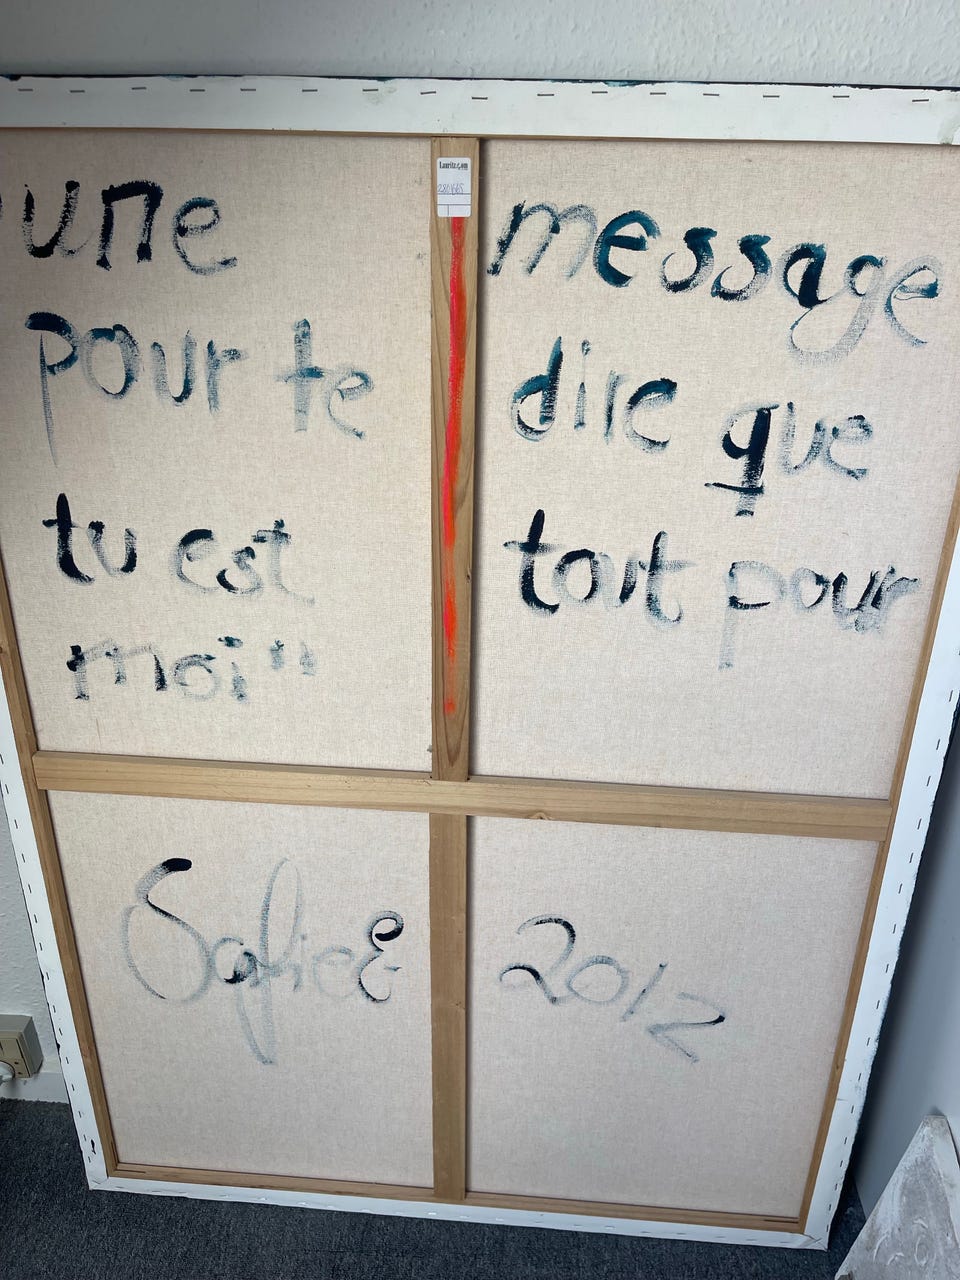 Lauritz.com
une message
pour te dire que
tu est tout pour
moi"
2012